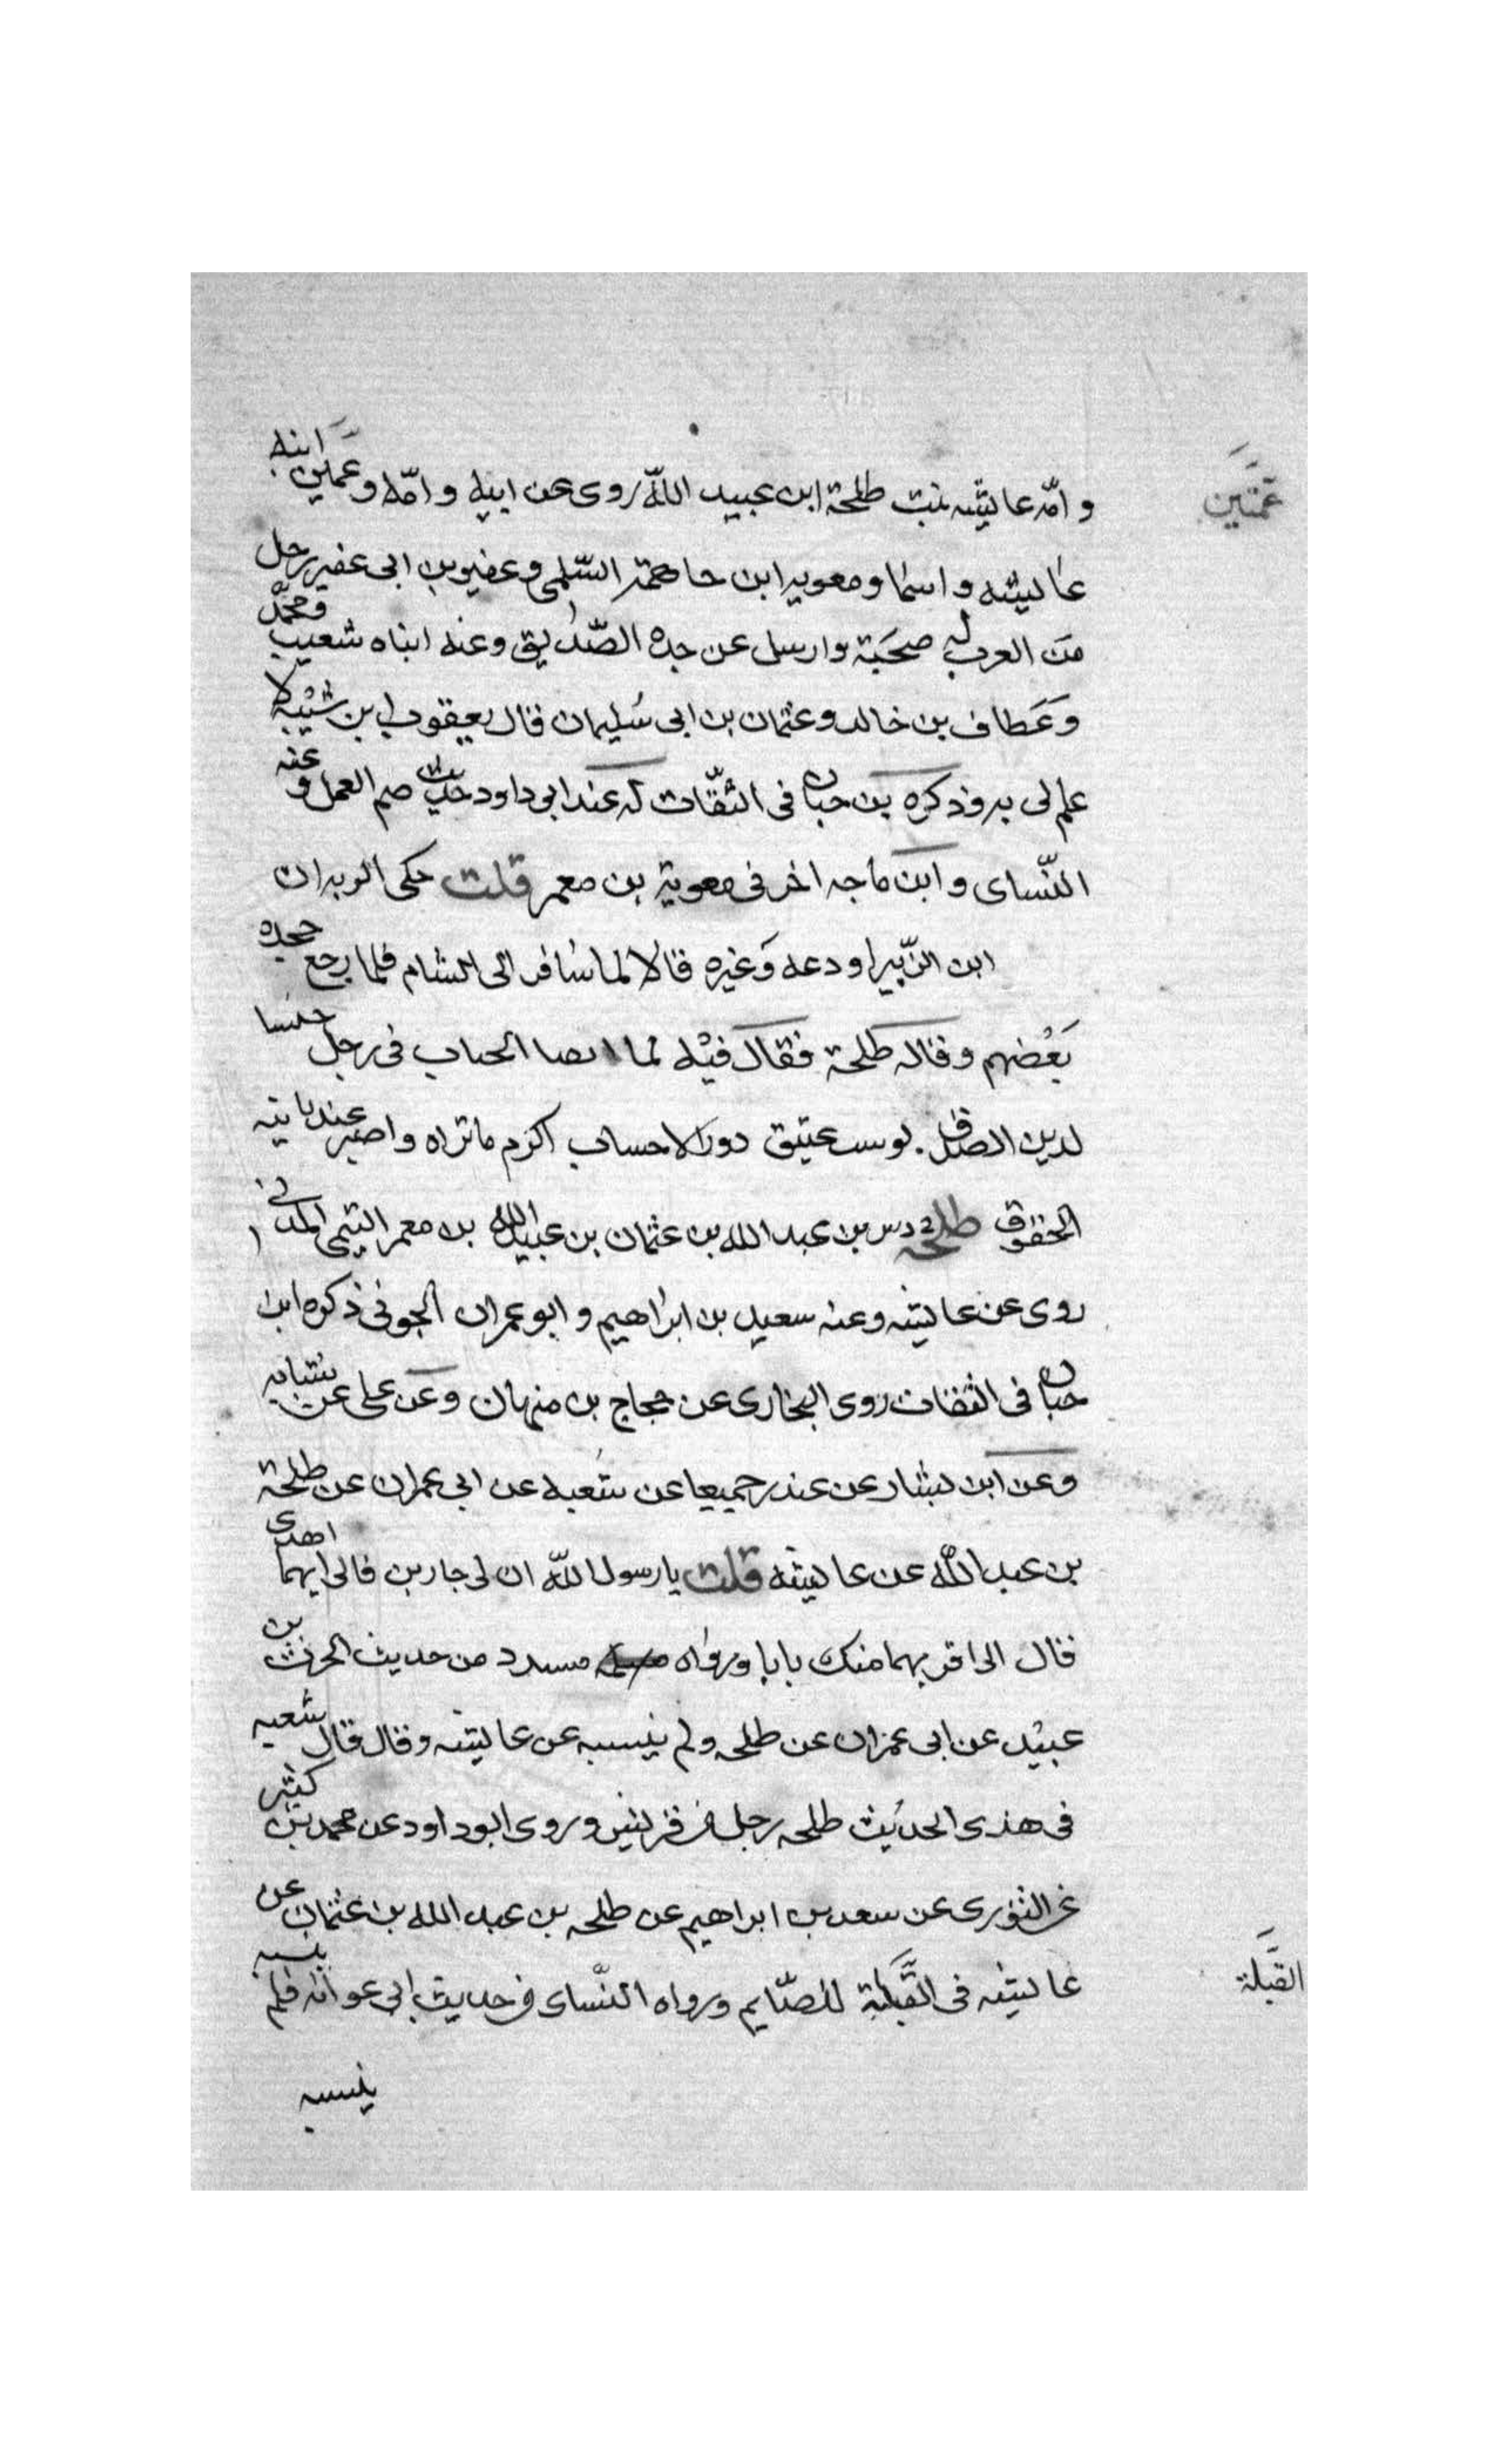 عمّتَين
وامّه عايشه بنت طلحة ابن عبيد اللّه روى عن ابيه وامّه وعمّلين ابيه
عايشه واسما ومعويه ابن جاهمة السّلمى وعفيربن ابى عفير رجل
من العرب له صحبة وارسل عن جده الصّديق وعنه ابناه شعيب ومحمّد
وعطاف بن خالد وعثمان بن ابى سليمان قال يعقوب ابن شيبه لا
علم لى به وذكره بن حبان فى الثقّات له عند ابى داود حديث صم العمل وعنه
النّساى وابن ماجه اخر فى معوية بن معمر قلت حكى الزبيران
ابن الزّبير اودعه وغيره قالا لما سافر الى الشام فلما رجع جحده
بعضهم وقاله طلحة فقال فيه لما الحساب فى رجل
لدين عتيق دون الاحساب اكرم ماتراه واصبر عند
الحقوق طلحة دس بن عبد الله بن عثمان بن عبيد الله بن معمر التيمى المدنى
روى عن عايشه وعنه سعيد بن ابراهيم وابو عمران الجونى ذكره ابن
حبان فى الثقات روى البخارى عن حجاج بن منهال وعن على عن شبابه
وعن ابن بشار عن غندر جميعا عن شعبه عن ابى عمران عن طلحة
بن عبد اللّه عن عايشه قلت يا رسول اللّه ان لى جارين فالى ايهما اهدى
قال الى اقربهما منك بابا ورواه مسدد من حديث الحرث بن
عبيد عن ابى عمران عن طلحه ولم ينسبه عن عايشه وقال قال شعبه
فى هذى الحديث طلحه رجل من قريش وروى ابوداود عن محمد بن كثير
عن الثورى عن سعد بن ابراهيم عن طلحه بن عبد الله بن عثمان عن
عايشه فى القُبلة للصّايم ورواه النّساى من حديث ابى عوانه فلم ينسبه
القبلة
ينسبه